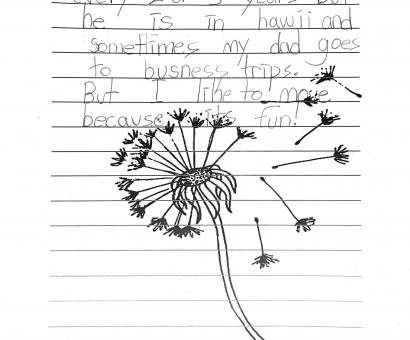 every 2 or 3 years but
he is in hawii and
sometimes my dad goes
to busness trips.
But I like to move
because its fun!